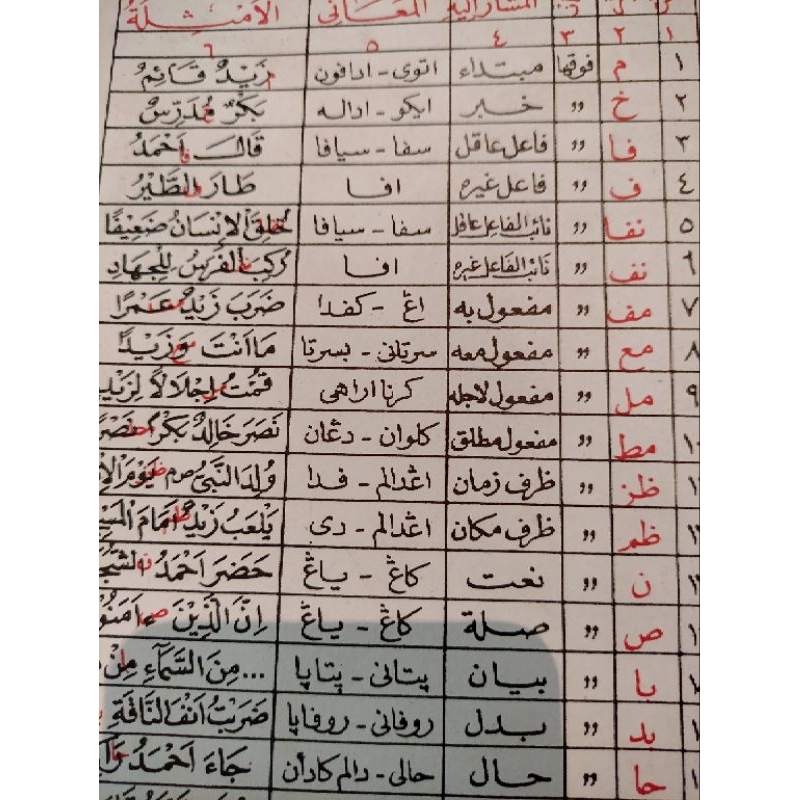 المشاراليه المعانى الأمثلة
١ ٢ ٣ ٤ ٥ ٦
١ م فوقها مبتداء اتوى - ادافون زَيْدٌ قَائِمٌ
٢ خ " خبر ايكو - اداله بَكْرٌ مُدَرِّسٌ
٣ فا " فاعل عاقل سفا - سيافا قَالَ اَحْمَدُ
٤ ف " فاعل غيره افا طَارَ الطَّيْرُ
٥ نفا " نائب الفاعل عاقل سفا - سيافا خُلِقَ الاِنْسَانُ ضَعِيْفًا
٦ نف " نائب الفاعل غيره افا رُكِبَ الْفَرَسُ لِلْجِهَادِ
٧ مف " مفعول به اڠ - كفدا ضَرَبَ زَيْدٌ عَمْرًا
٨ مع " مفعول معه سرتانى - بسرتا مَا اَنْتَ وَزَيْدًا
٩ مل " مفعول لاجله كرنا اراهى قُمْتُ اِجْلَالًا لِزَيْدٍ
مط " مفعول مطلق كلوان - دڠان نَصَرَ خَالِدٌ بَكْرًا
ظز " ظرف زمان اڠدالم - فدا وُلِدَ النَّبِيُّ صم يَوْمَ
ظم " ظرف مكان اڠدالم - دى يَلْعَبُ زَيْدٌ اَمَامَ
ن " نعت كاڠ - ياڠ حَضَرَ اَحْمَدُ
ص " صلة كاڠ - ياڠ اِنَّ الَّذِيْنَ
با " بيان پيتانى - پتاپا ...مِنَ السَّمَآءِ مِنْ
بد " بدل روفانى - روفاپا ضَرَبْتُ اَنْفَ النَّاقَةِ
حا " حال حالى - دالم كادأن جَاءَ اَحْمَدُ